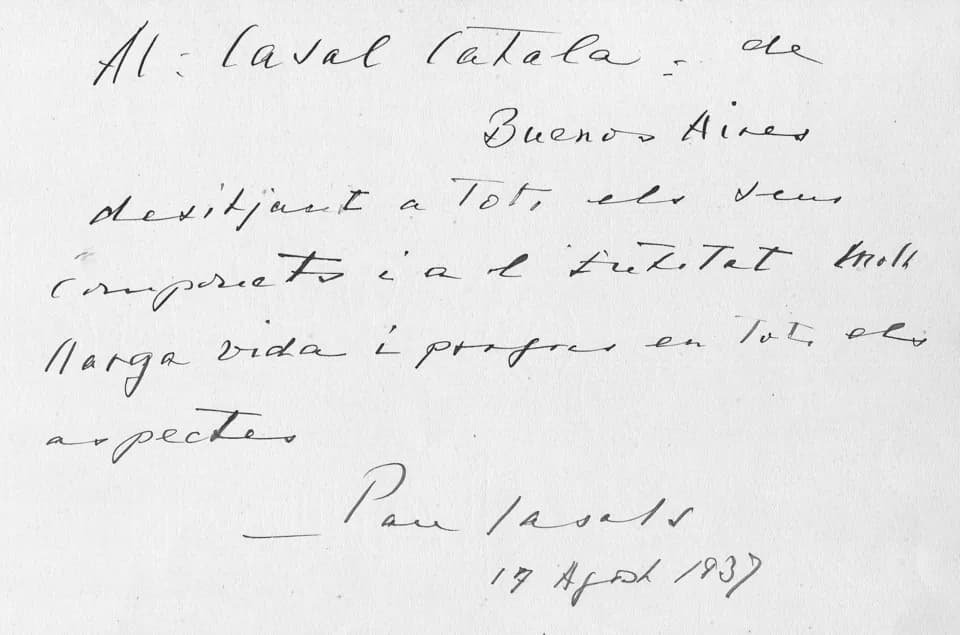 Al : Casal Català - de
Buenos Aires
desitjant a tots els seus
components i a l'Entitat molt
llarga vida i progres en tots els
aspectes
Pau Casals
17 Agost 1937